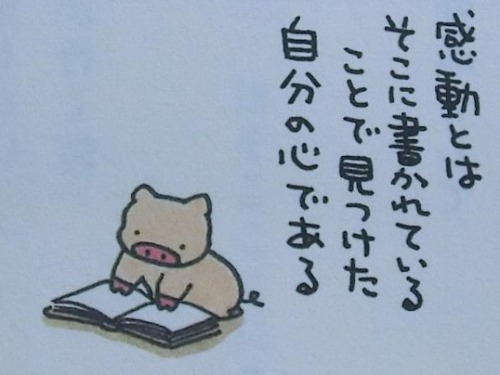 感動とは
そこに書かれている
ことで見つけた
自分の心である